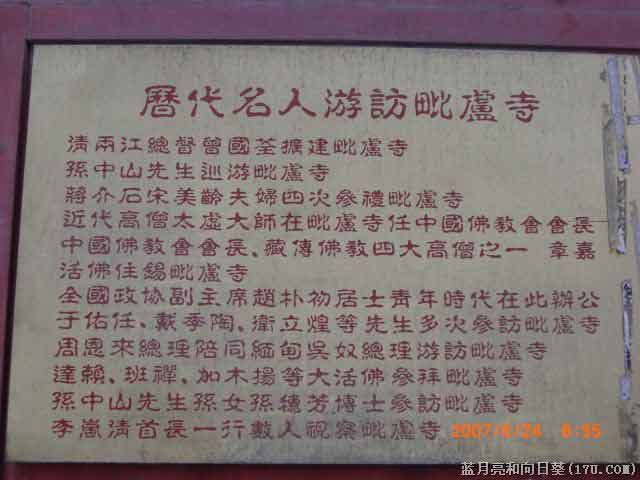 曆代名人游訪毗盧寺
清兩江總督曾國荃擴建毗盧寺
孫中山先生巡游毗盧寺
蔣介石宋美齡夫婦四次參禮毗盧寺
近代高僧太虛大師在毗盧寺任中國佛教會會長
中國佛教會會長、藏傳佛教四大高僧之一 章嘉
活佛住錫毗盧寺
全國政協副主席趙朴初居士青年時代在此辦公
于佑任、戴季陶、衛立煌等先生多次參訪毗盧寺
周恩來總理陪同緬甸吳奴總理游訪毗盧寺
達賴、班禪、加木揚等大活佛參拜毗盧寺
孫中山先生孫女孫穗芳博士參訪毗盧寺
李嵐清首長一行數人視察毗盧寺
2007/6/24 8:55
蓝月亮和向日葵(17U.com)